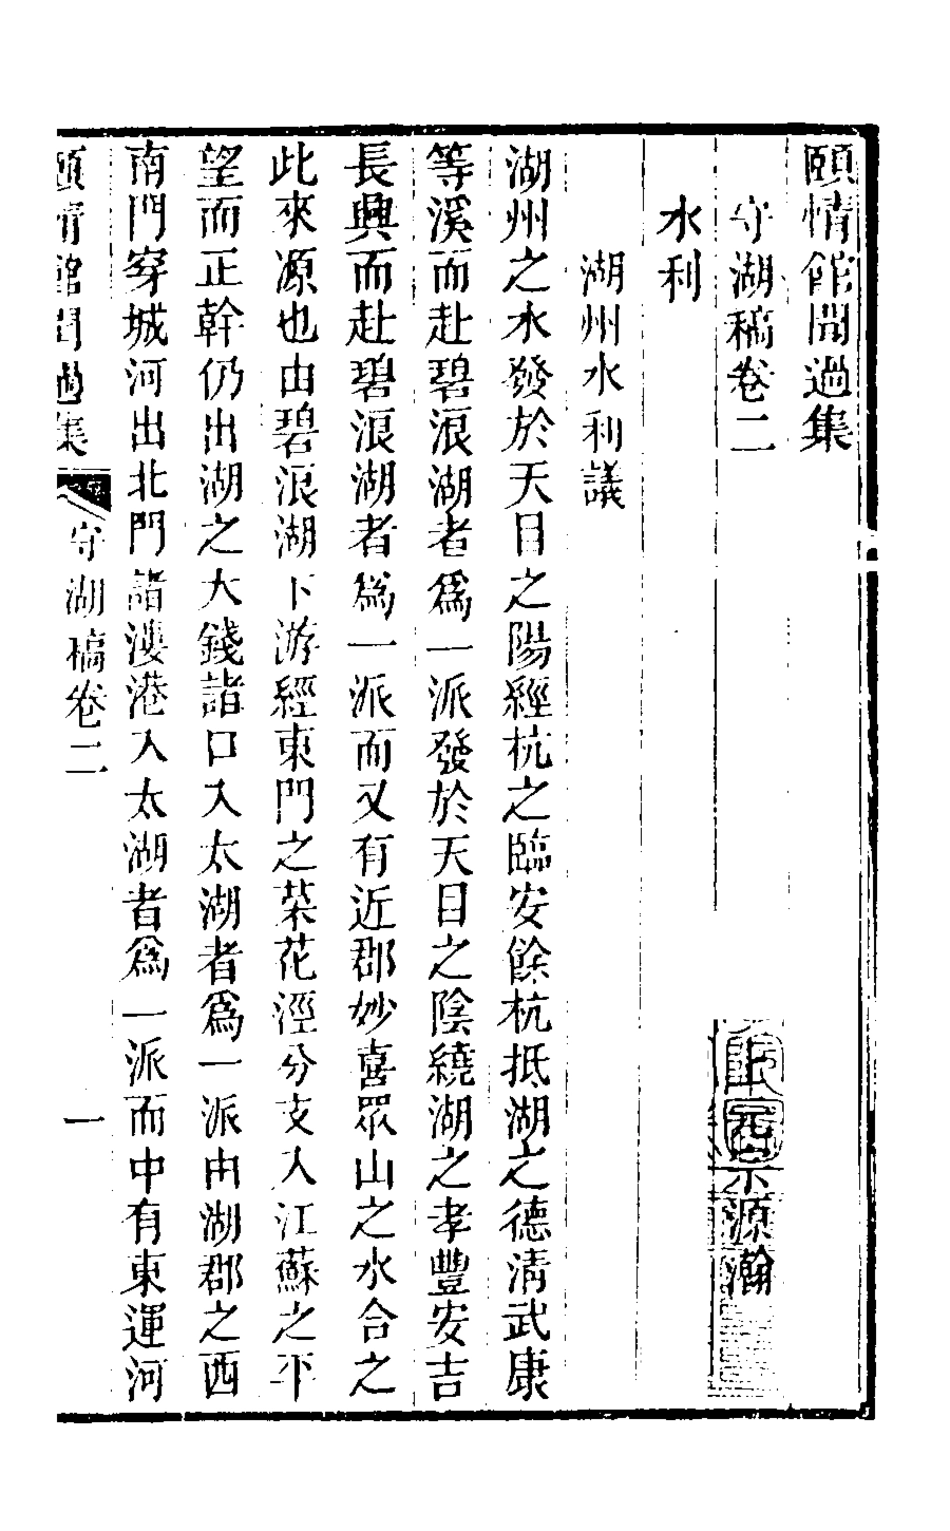 頤情館聞過集
守湖稿卷二
上元宗源瀚
水利
湖州水利議
湖州之水發於天目之陽經杭之臨安餘杭抵湖之德淸武康
等溪而赴碧浪湖者爲一派發於天目之陰繞湖之孝豐安吉
長興而赴碧浪湖者爲一派而又有近郡妙喜眾山之水合之
此來源也由碧浪湖下游經東門之菜花涇分支入江蘇之平
望而正幹仍出湖之大錢諸口入太湖者爲一派由湖郡之西
南門穿城河出北門諸漊港入太湖者爲一派而中有東運河
頤情館聞過集
守湖稿卷二
一